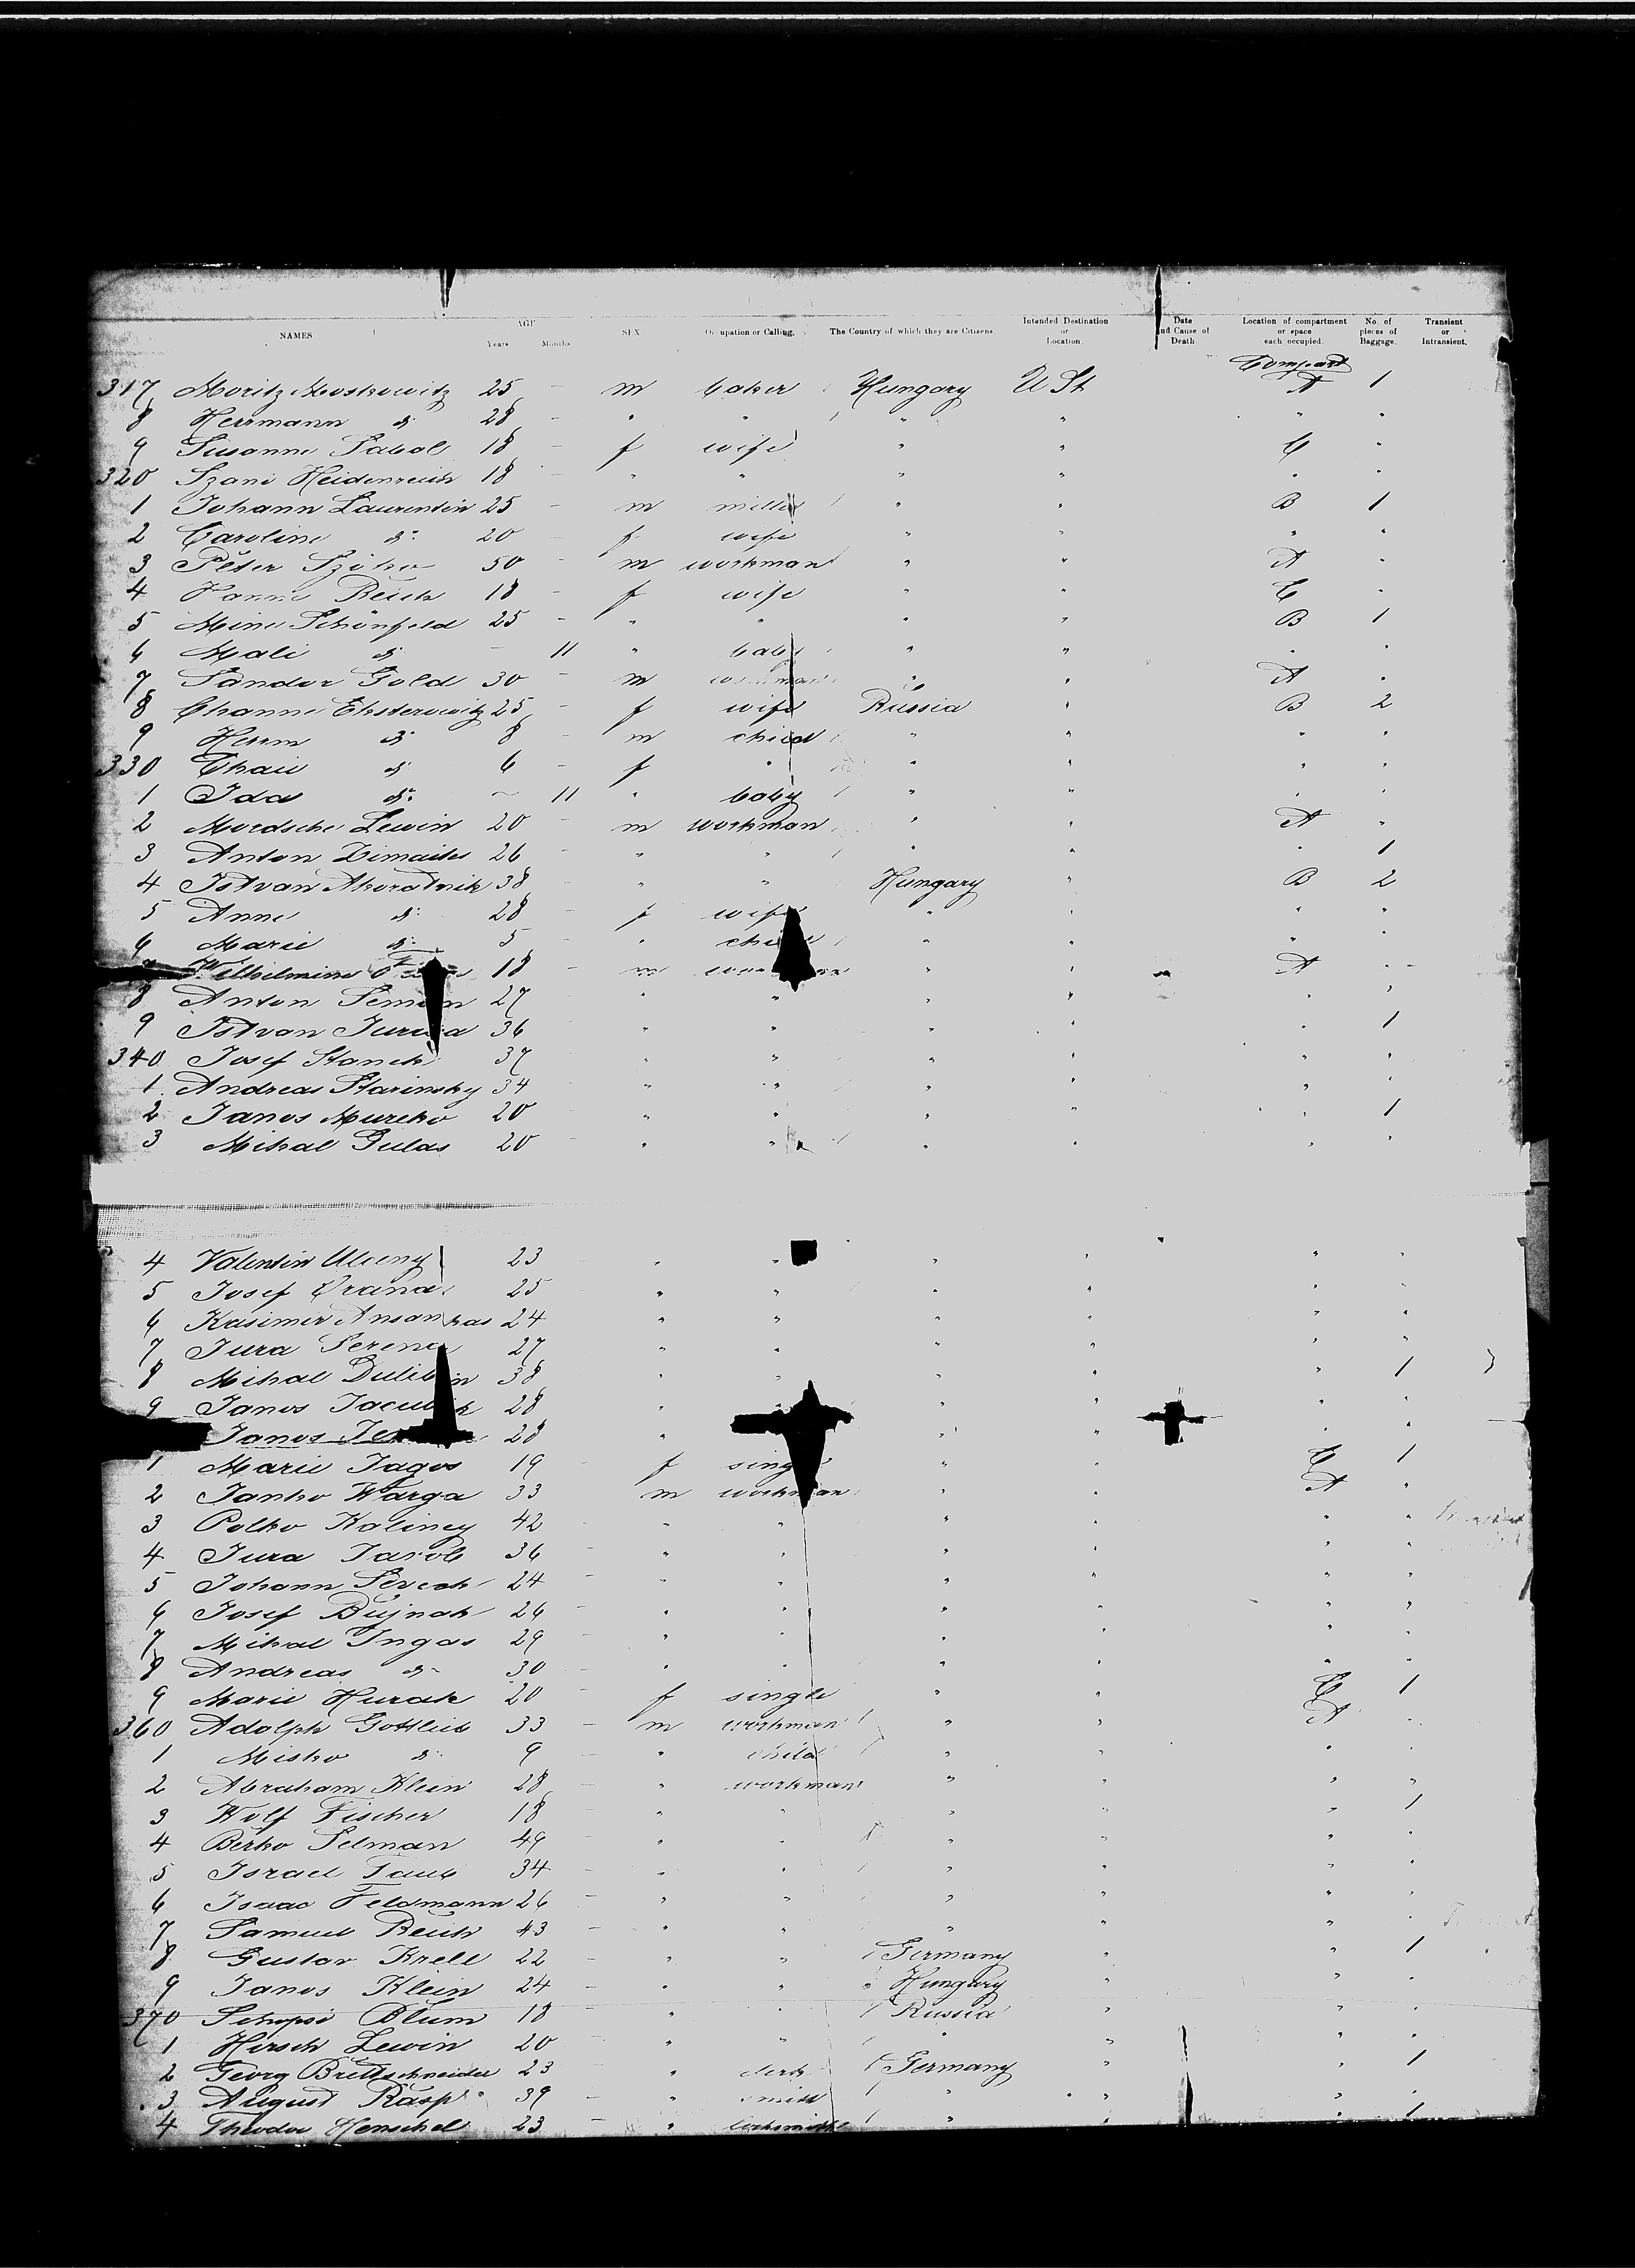 NAMES AGE Years Months SEX Occupation or Calling. The Country of which they are Citizens. Intended Destination or Location. Date and Cause of Death Location of compartment or space each occupied. No. of pieces of Baggage. Transient or Intransient.
Compart
317 Moritz Moskowitz 25 - m baker Hungary U St A 1
8 Herrmann do 28 - " " " " " "
9 Susanne Sabol 18 - f wife " " C "
320 Szani Heidenreich 18 - " " " " " "
1 Johann Laurentin 25 - m miller " " B 1
2 Caroline do 20 - f wife " " " "
3 Peter Sziko 50 - m workman " " A "
4 Hanne Reich 18 - f wife " " C "
5 Mine Schönfeld 25 - " " " " B 1
6 Mali do - 11 " baby " " " "
7 Sandor Gold 30 - m workman " " A "
8 Channe Eksterowitz 25 - f wife Russia " B 2
9 Herm do 8 - m child " " " "
330 Chaie do 6 - f " " " " "
1 Ida do - 11 " baby " " " "
2 Mordsche Lewin 20 - m workman " " A "
3 Anton Zimaites 26 - " " " " " 1
4 Istvan 38 - " " Hungary " B 2
5 Anne do 28 - f wife " " " "
6 Marie do 5 - " child " " " "
Wilhelmine 18 - m workman " " A "
8 Anton 27 " " " " " "
9 Istvan 36 " " " " " 1
340 Josef Stanek 37 " " " " " "
1 Andreas Starinsky 34 " " " " " "
2 Janos Mureko 20 " " " " " 1
3 Mihal Gulas 20 " " " " " "
4 Valentin 23 " " " " " "
5 Josef 25 " " " " " "
6 Kasimir 24 " " " " " "
7 Jura 27 " " " " " "
8 Mihal 38 " " " " " 1
9 Janos 28 " " " " "
Janos 28 " " " " "
1 Marie Jagos 19 f single " " C 1
2 Janko Warga 33 m workman " " A "
3 Polko Kaliney 42 - " " " " " "
4 Jura Jacob 36 - " " " " " "
5 Johann 24 - " " " " " "
6 Josef Bujnak 26 - " " " " " "
7 Mihal Ingas 29 - " " " " " "
8 Andreas do 30 - " " " " " "
9 Marie Hurak 20 - f single " " C 1
360 Adolph Gottlieb 33 - m workman " " A "
1 Misko do 9 - " child " " " "
2 Abraham Klein 28 - " workman " " " "
3 Wolf Fischer 18 - " " " " " 1
4 Berko Selman 49 - " " " " " "
5 Israel Taub 34 - " " " " " "
6 Isaac Feldmann 26 - " " " " " "
7 Samuel Reich 43 - " " " " " "
8 Gustav Krell 22 - " " Germany " " 1
9 Janos Klein 24 - " " Hungary " " "
370 Schopsi Blum 18 - " " Russia " " "
1 Hirsch Lewin 20 " " " " " "
2 Georg Brettschneider 23 " clerk Germany " " 1
3 August Rasp 39 - " smith " " " "
4 Theodor Henschel 23 - " locksmith " " " 1